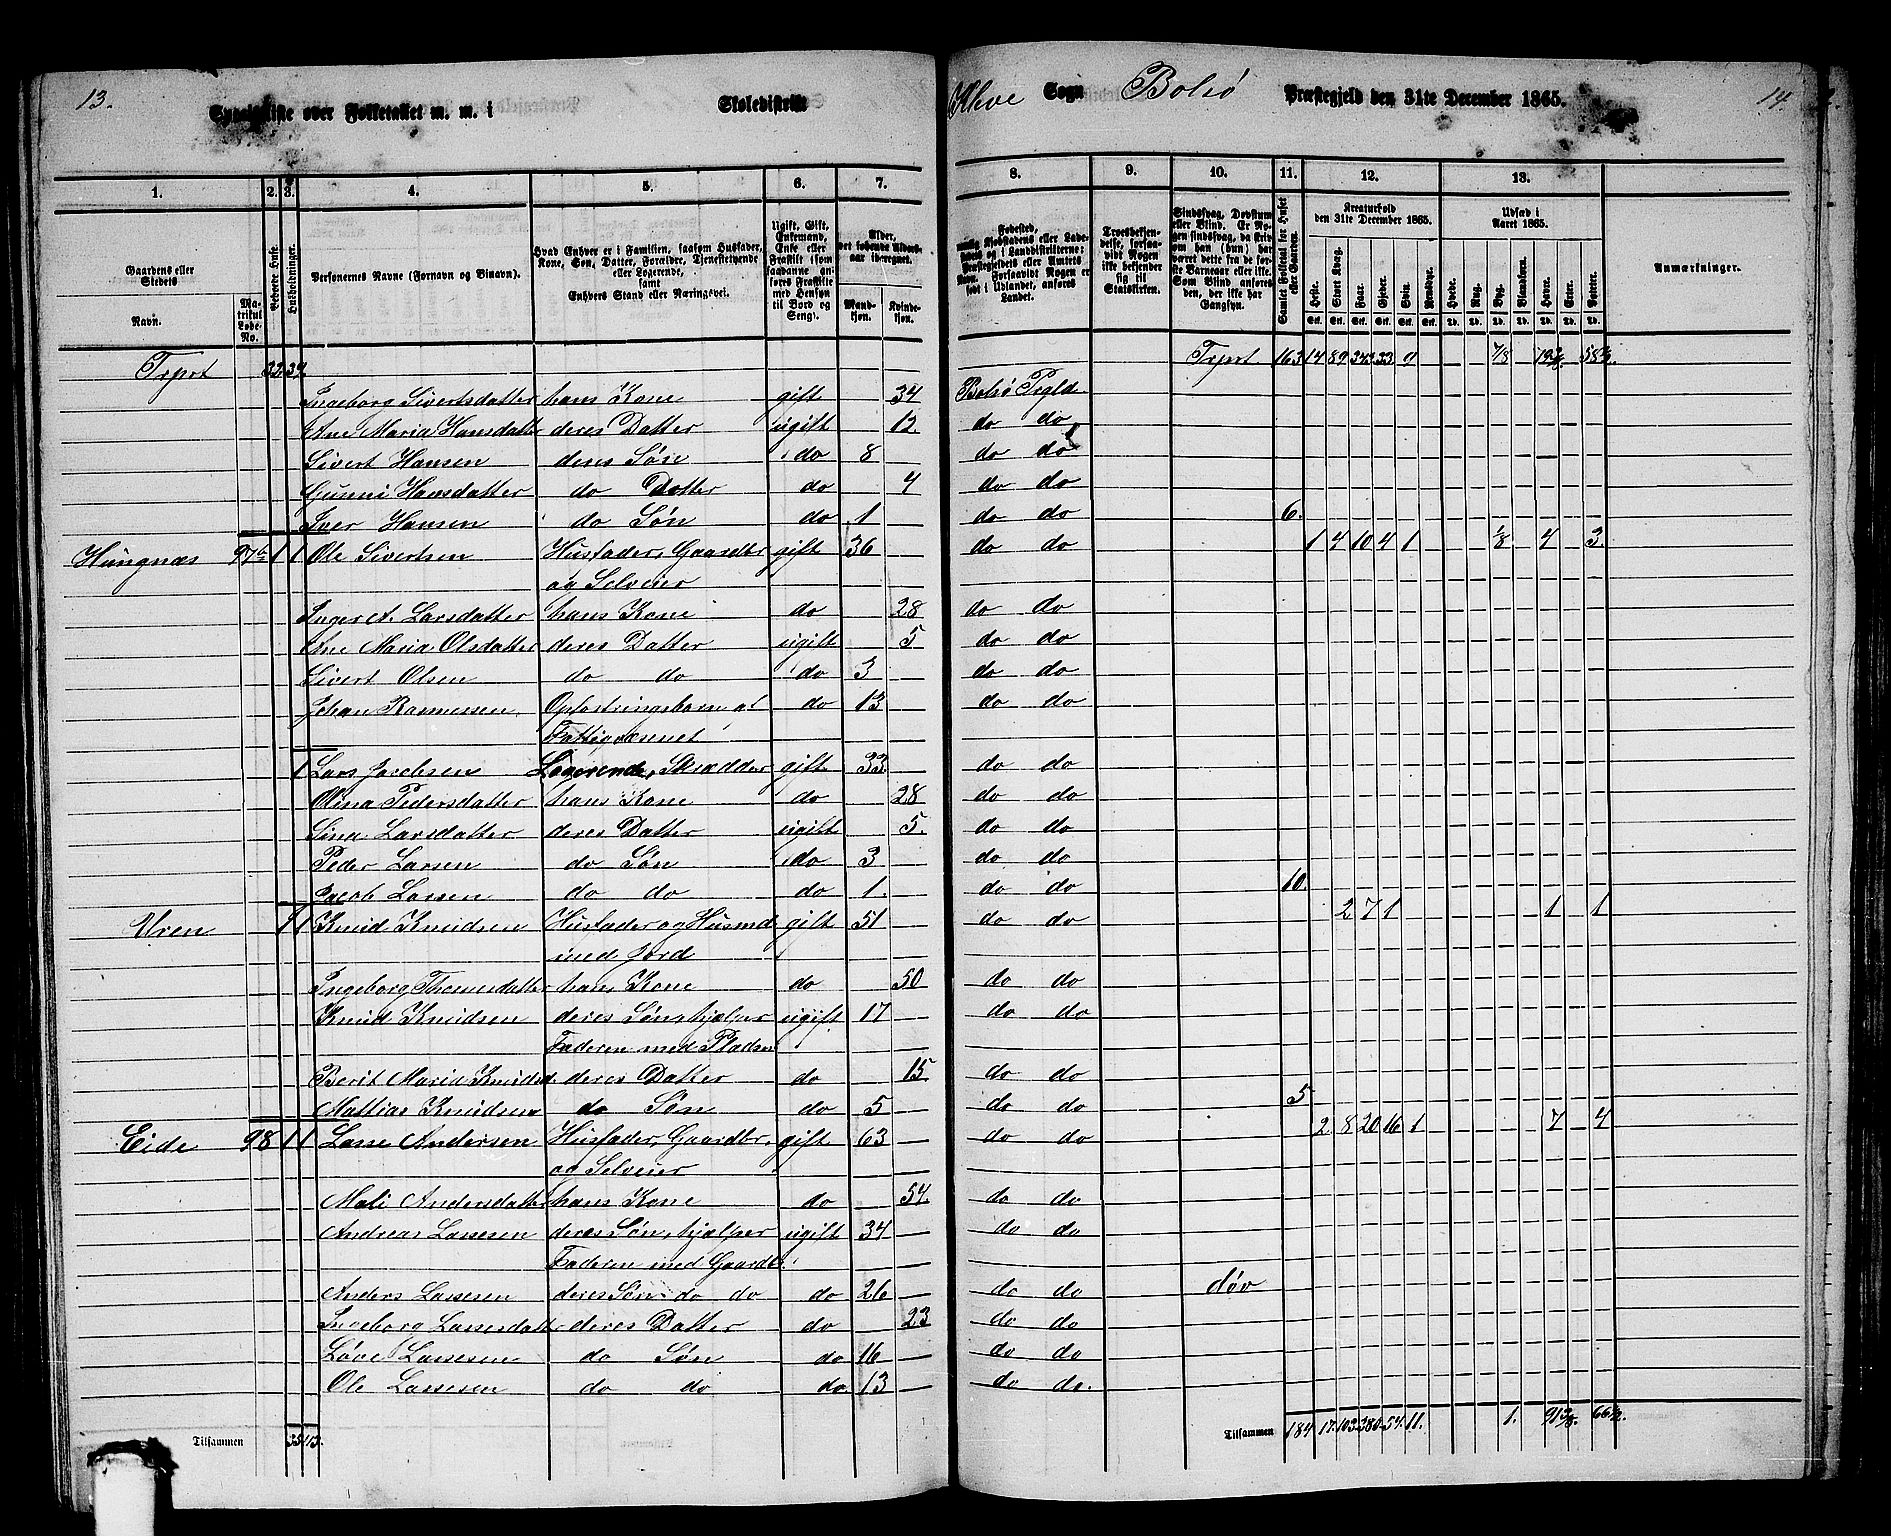 13.
Specialliste over Folketallet m. m. i Skoledistrikt
Kleve Sogn Bolsø Præstegjeld den 31te December 1865.
14.
1. 2. 3. 4. 5. 6. 7. 8. 9. 10. 11. 12. 13.
Gaardens eller Stedets Navn.
Matrikul Løbe-No.
Beboede Huse.
Husholdninger.
Personernes Navne (Fornavn og Binavn).
Hvad Enhver er i Familien, saasom Husfader, Kone, Søn, Datter, Forældre, Tjenestetyende eller Logerende, samt Enhvers Stand eller Næringsvei.
Ugift, Gift, Enkemand, Enke eller Fraskilt
Alder, det løbende Aldersaar iberegnet.
Mandkjøn. Kvindekjøn.
Fødested,
Troesbekjendelse, forsaavidt Nogen ikke bekjender sig til Statskirken.
Sindssvag, Døvstum eller Blind.
Samlet Folketal for Huset eller Gaarden.
Kreaturhold den 31te December 1865.
Heste. Stort Kvæg. Faar. Gjeder. Svin. Rensdyr.
Udsæd i Aaret 1865.
Hvede. Rug. Byg. Blandkorn. Havre. Erter. Poteter.
Anmærkninger.
Trprt 32 39 Trprt 163 14 89 343 33 9 7/8 79 3/8 58 1/2
Ingeborg Sivertsdatter hans Kone gift 34 Bolsø Prgld
Ane Maria Hansdatt deres Datter ugift 12. do do
Sivert Hansen deres Søn do 8 do do
Gunni Hansdatter do Datter do 4 do do
Iver Hansen do Søn do 1 do do 6.
Hungnæs 97b 1 1 Ole Sivertsen Husfader, Gaardbr gift 36 do do 1 4 10 4 1 1/8 4 3.
og Selveier
Ingeret Larsdatter hans Kone do 28 do do
Ane Maria Olsdatter deres Datter ugift 5 do do
Sivert Olsen do do do 3 do do
Johan Rasmussen, Opfostringsbarn af do 13 do do
Fattigvæsenet
1 Lars Jacobsen Logerende, Skrædder gift 33. do do
Olina Pedersdatter hans Kone do 28 do do
Sina Larsdatter deres Datter ugift 5. do do
Peder Larsen do Søn do 3 do do
Jacob Larsen do do do 1. do do 10.
Uren 1 1 Knud Knudsen Husfader og Husmd gift 51 do do 2 7 1 1 1
med Jord
Ingeborg Thomasdatter hans Kone do 50 do do
Knud Knudsen deres Søn, hjelper ugift 17 do do
Faderen med Pladsen
Berit Maria Knudsd. deres Datter do 15 do do
Mattias Knudsen do Søn do 5 do do 5
Eide 98 1 1 Lasse Andersen Husfader, Gaardbr. gift 63 do do 2 8 20 16 1 7 4
og Selveier
Mali Andersdatter hans Kone do 54. do do
Andreas Lassesen deres Søn, hjælper ugift 34 do do
Faderen med Gaardbr.
Anders Lassesen deres Søn do do do 26 do do døv
Ingeborg Lassesdatter deres Datter do 23 do do
Lasse Lassesen do Søn do 16 do do
Ole Lassesen do do do 13 do do.
Tilsammen 35 43. Tilsammen 184 17. 103. 380. 54. 11. 1. 91 3/8 66 1/2.